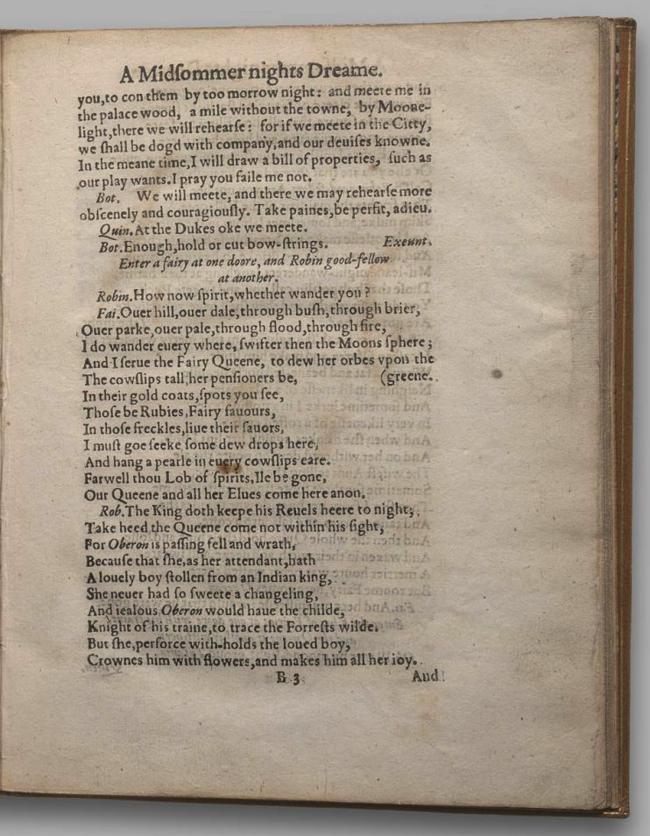 A Midſommer nights Dreame.
you, to con them by too morrow night: and meete me in
the palace wood, a mile without the towne, by Moone-
light, there we will rehearſe: for if we meete in the Citty,
we ſhall be dogd with company, and our deuiſes knowne.
In the meane time, I will draw a bill of properties, ſuch as
our play wants. I pray you faile me not.
Bot. We will meete, and there we may rehearſe more
obſcenely and couragiouſly. Take paines, be perfit, adieu.
Quin. At the Dukes oke we meete.
Bot. Enough, hold or cut bow-ſtrings. Exeunt.
Enter a fairy at one doore, and Robin good-fellow
at another.
Robin. How now ſpirit, whether wander you?
Fai. Ouer hill, ouer dale, through buſh, through brier,
Ouer parke, ouer pale, through flood, through fire,
I do wander euery where, ſwifter then the Moons ſphere;
And I ſerue the Fairy Queene, to dew her orbes vpon the
The cowſlips tall, her penſioners be, (greene.
In their gold coats, ſpots you ſee,
Thoſe be Rubies, Fairy fauours,
In thoſe freckles, liue their ſauors,
I muſt goe ſeeke ſome dew drops here,
And hang a pearle in euery cowſlips eare.
Farwell thou Lob of ſpirits, Ile be gone,
Our Queene and all her Elues come here anon.
Rob. The King doth keepe his Reuels heere to night,
Take heed the Queene come not within his ſight,
For Oberon is paſſing fell and wrath,
Because that ſhe, as her attendant, hath
A louely boy ſtollen from an Indian king,
She neuer had ſo ſweete a changeling,
And iealous Oberon would haue the childe,
Knight of his traine, to trace the Forreſts wilde.
But ſhe, perforce with-holds the loued boy,
Crownes him with flowers, and makes him all her ioy.
B 3 And